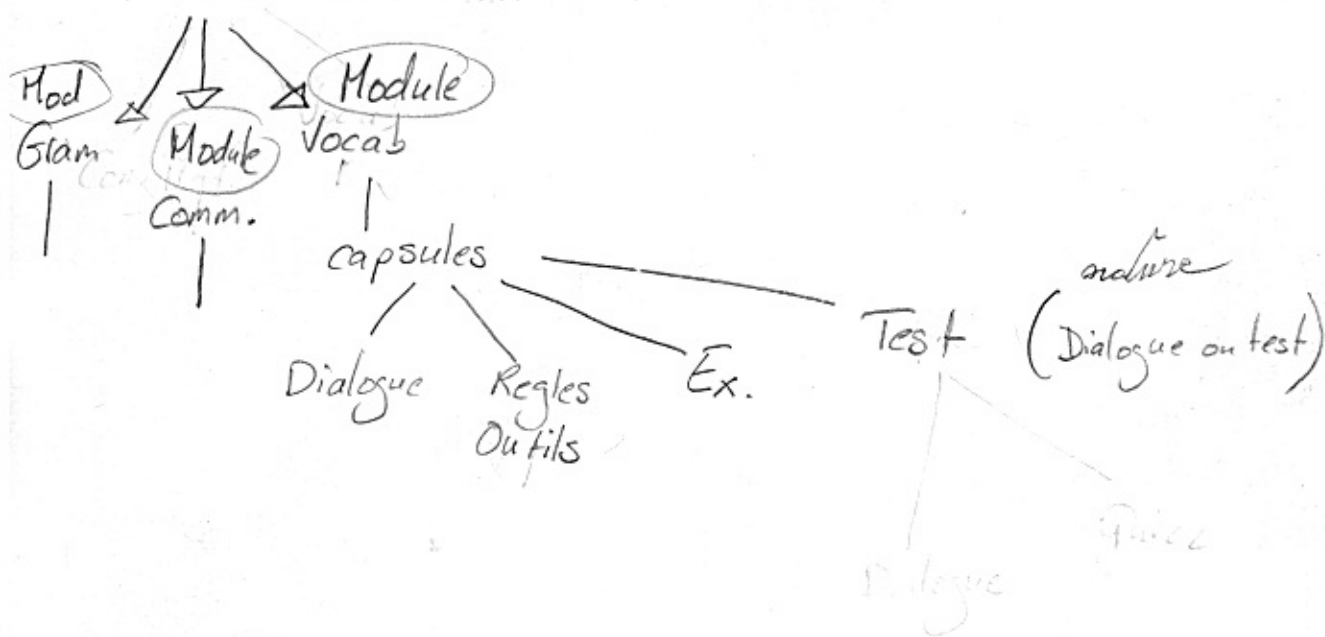 Mod
Gram
Module
Comm.
Module
Vocab
capsules
Dialogue
Regles
Outils
Ex.
Test
nature
(Dialogue ou test)
Dialogue